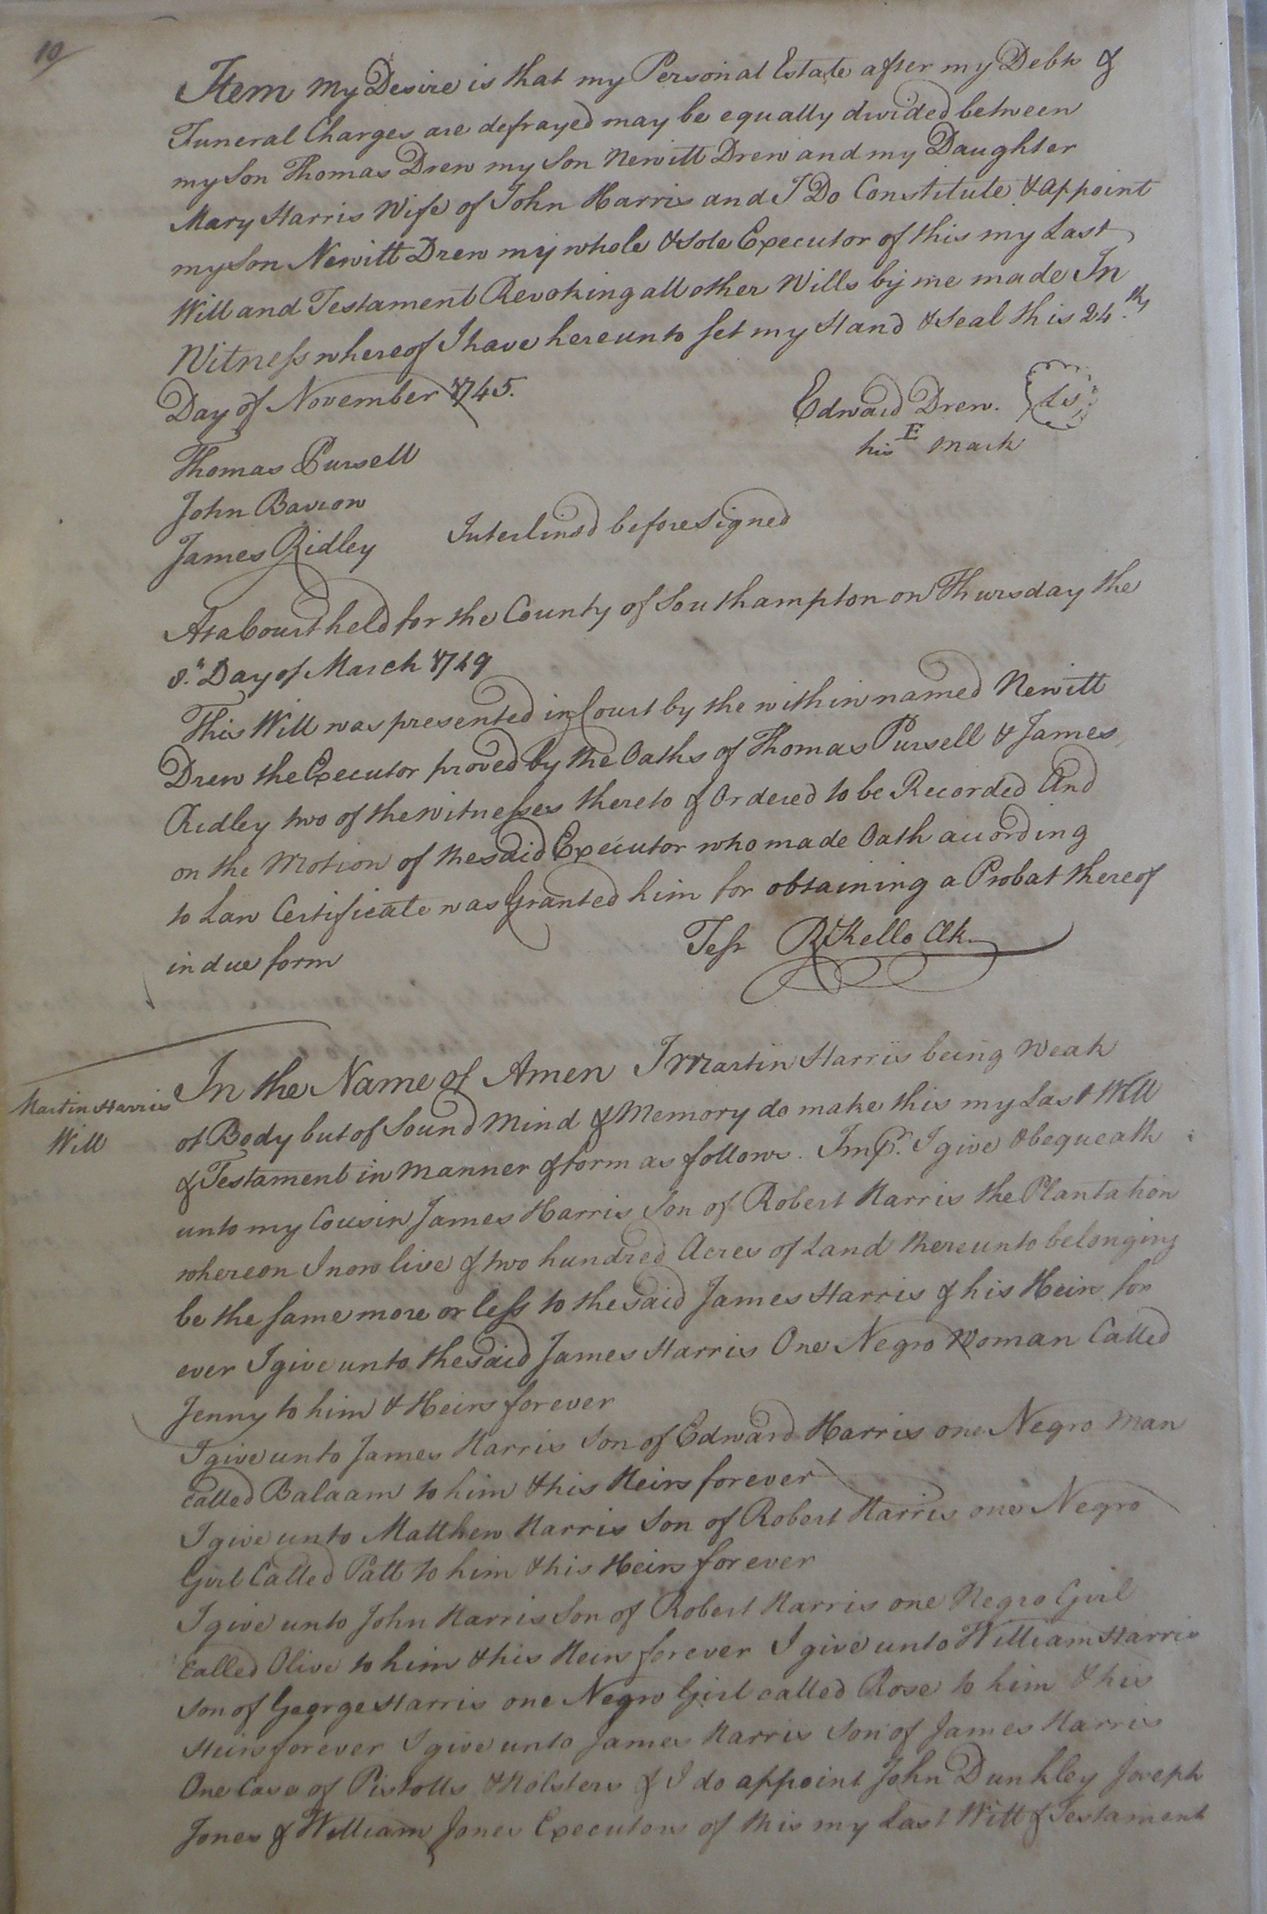 10
Item My Desire is that my Personal Estate after my Debts &
Funeral Charges are defrayed may be equally divided between
my Son Thomas Drew my Son Newitt Drew and my Daughter
Mary Harris Wife of John Harris and I Do Constitute & appoint
my Son Newitt Drew my whole & Sole Executor of this my Last
Will and Testament Revoking all other Wills by me made In
Witness whereof I have hereunto set my Hand & Seal this 24th
Day of November 1745.
Edward Drew. LS
his E mark
Thomas Pursell
John Barrow
James Ridley Interlin'd before Signed
At a Court held for the County of Southampton on Thursday the
8th Day of March 1749
This Will was presented in Court by the within named Newitt
Drew the Executor proved by the Oaths of Thomas Pursell & James
Ridley two of the witnesses thereto & Ordered to be Recorded And
on the Motion of the said Executor who made Oath according
to Law Certificate was Granted him for obtaining a Probat thereof
in due form
Test R Kello Clk
Martin Harris
Will
In the Name of Amen I Martin Harris being Weak
of Body but of Sound Mind & Memory do make this my Last Will
& Testament in manner & form as follows. Imp. I give & bequeath
unto my Cousin James Harris Son of Robert Harris the Plantation
whereon I now live & two hundred Acres of Land thereunto belonging
be the same more or less to the said James Harris & his Heirs for
ever I give unto the said James Harris One Negro Woman Called
Jenny to him & Heirs forever
I give unto James Harris Son of Edward Harris one Negro Man
called Balaam to him & his Heirs forever
I give unto Matthew Harris Son of Robert Harris one Negro
Girl Called Patt to him & his Heirs forever
I give unto John Harris Son of Robert Harris one Negro Girl
called Olive to him & his Heirs forever I give unto William Harris
Son of George Harris one Negro Girl called Rose to him & his
Heirs forever I give unto James Harris Son of James Harris
One Case of Pistolls & Holsters & I do appoint John Dunkley Joseph
Jones & William Jones Executors of this my Last Will & Testament